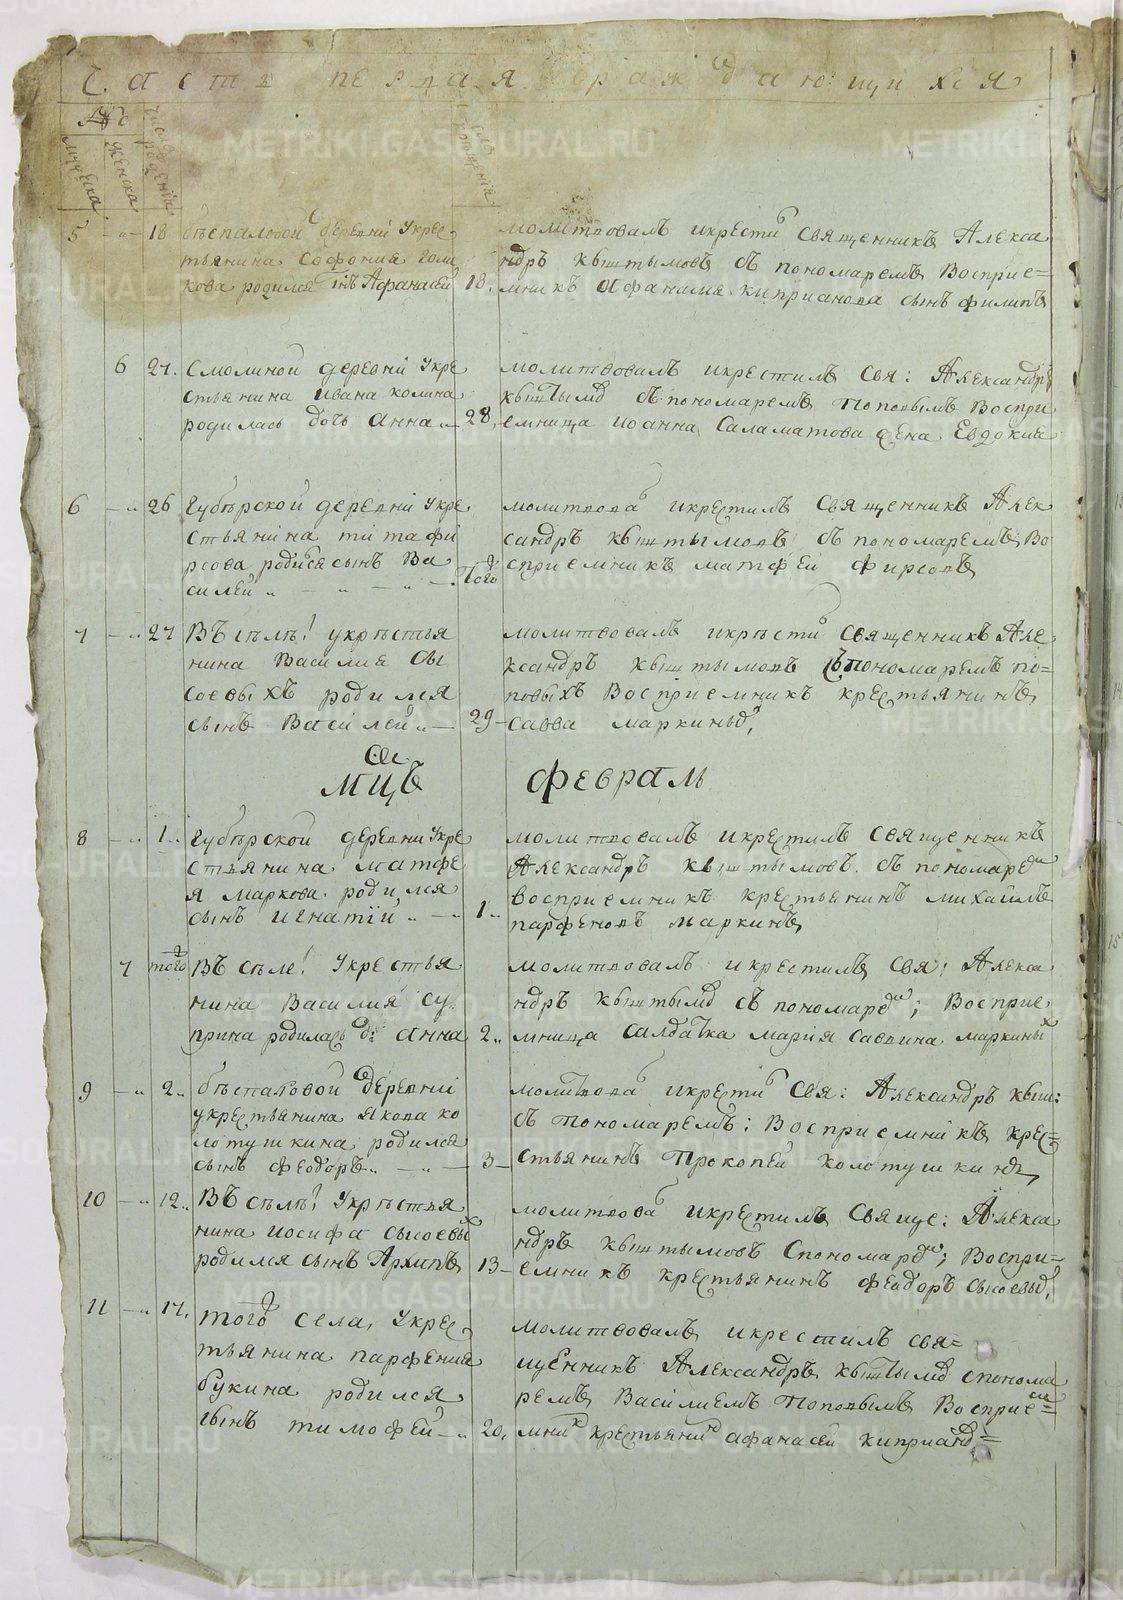 Часть первая о раждающихся
мужеска
женска
число рождения
крещения
5 - " - 18 бѣспаловой деревни укрес
тьянина Софония Голи
кова родился сынъ Афанасей 18.
молитвовалъ икрести священникъ Алекса
ндръ кыштымовъ съ пономаремъ восприе=
мникъ Афанасия киприанова сынъ филипъ
6 27. Смолиной деревни укре
стьянина Ивана колина
родилась дочь Анна 28,
молитвовалъ икрестилъ свя: Александръ
кыштымо съ пономаремъ Поповымъ Воспри
емница иоанна Саламатова жена Евдокия
6 - " 26 Губѣрской деревни укре
стьянина тита фи
рсова родился сынъ Ва
силей " - " - " - того
молитвова икрестилъ священникъ Алек
сандръ кыштымовъ съ пономаремъ Во
сприемникъ матфей фирсовъ
7 - " 27 Въ сѣлѣ! укрѣстья
нина Василия Сы
соевыхъ родился
сынъ Василей " - 29-
молитвовалъ икрѣсти священникъ Але
ксандръ кыштымовъ съпономаремъ по=
повыхъ Восприемникъ крестьянинъ
савва маркиныхъ,
мцъ февраль
8 - " 1.. Губѣрской деревни укре
стьянина матфе
я маркова родился
сынъ игнатий " - " 1..
молитвовалъ икрестилъ священникъ
Александръ кыштымовъ. съ пономаре
восприемникъ крестьянинъ михайлъ
парфеновъ маркинъ,
7 того Въ сѣле! укрестья
нина Василия су
прина родилась до: Анна 2..
молитвовалъ икрестилъ свя! Алекса
ндръ кыштымо съ пономаре; Восприе
мница салдатка мария савина маркиных
9 - " 2.. бѣспаловой деревни
укрестьянина якова ко
лотушкина родился
сынъ феодоръ.. - " - 3-
молитвова икрести свя: Александръ кыш:
съ пономаремъ; Восприемникъ крес=
стьянинъ Прокопей колотушкинъ,
10 - " 12.. Въ сѣлѣ! укрѣстья
нина иосифа сысоевых
родился сынъ Архипъ 13-
молитвова икрестилъ свяще: Алекса
ндръ кыштымовъ спономаре; Воспри=
емникъ крестьянинъ феодоръ сысоевых,
11 - " 17. того села, укрес
тьянина парфения
букина родился
сынъ тимофей - " 20,
молитвовалъ икрестилъ свя=
щенникъ Александръ кыштымо спонома
ремъ Василиемъ Поповымъ Восприе=
мник крестьянин афанасей киприано=
METRIKI.GASO-URAL.RU